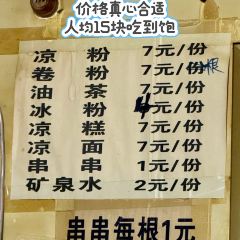 价格真心合适
人均15块吃到饱
凉粉 7元/份
卷粉 7元/份 根
油茶 7元/份
冰粉 4元/份
凉糕 7元/份
凉面 7元/份
串串 1元/份
矿泉水 2元/份
串串每根1元